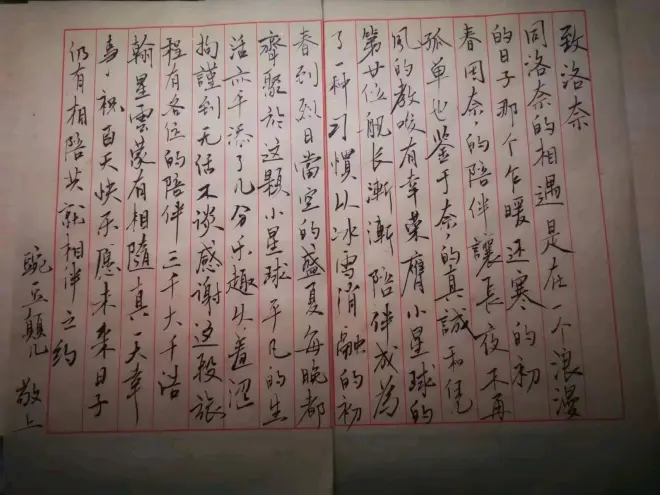 致洛奈
同洛奈的相遇是在一个浪漫
的日子那个乍暖还寒的初
春因奈的陪伴讓長夜不再
孤单也鉴于奈的真誠和凭
风的教唆有幸荣膺小星球的
第廿位舰长漸漸陪伴成為
了一种习慣从冰雪消融的初
春到烈日當空的盛夏每晚都
齊聚於这颗小星球平凡的生
活亦平添了几分乐趣从羞涩
拘謹到无话不谈感谢这段旅
程有各位的陪伴三千大千浩
翰星雲蒙有相隨真一大幸
事祝百天快乐愿未来日子
仍有相陪共就相伴之约
豌豆顛儿 敬上